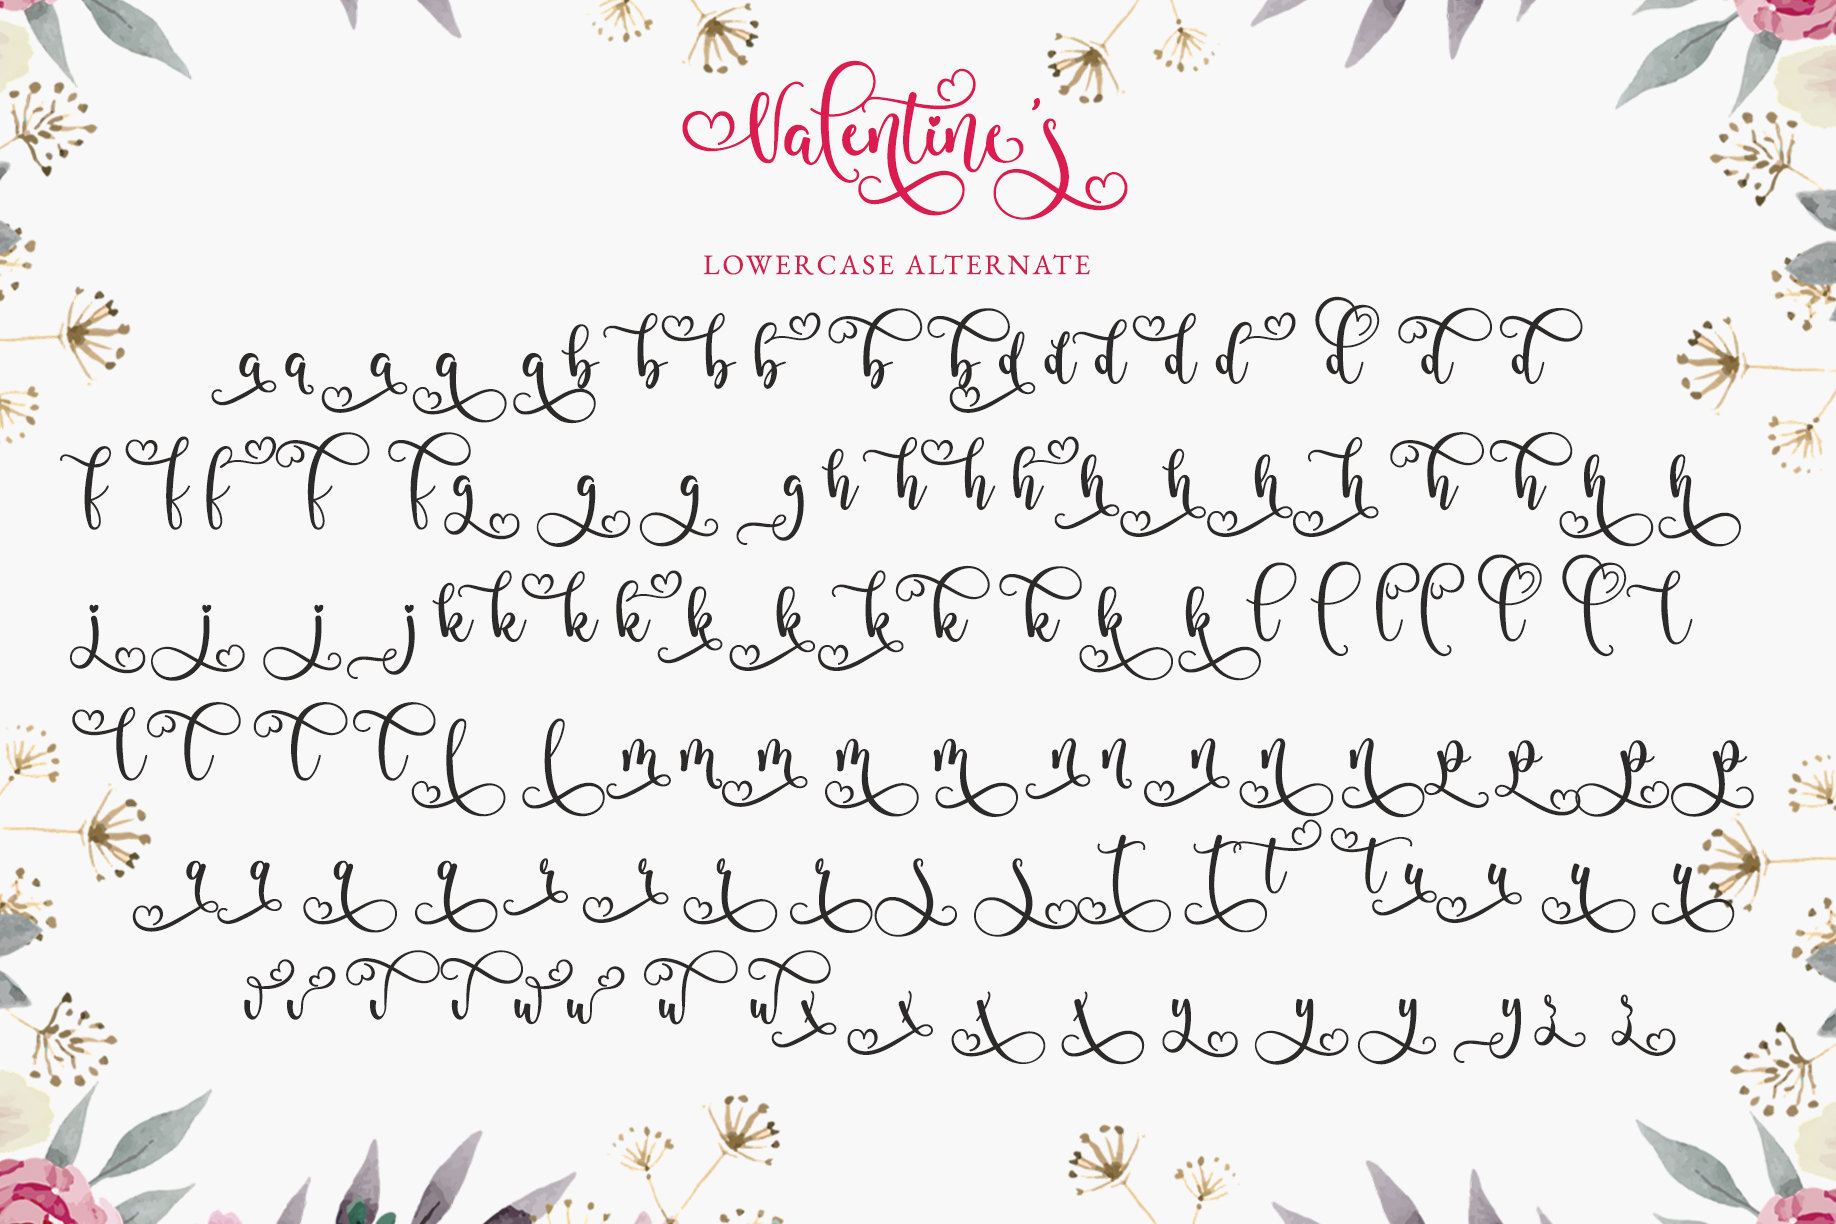 Valentine's
LOWERCASE ALTERNATE
a a a a a b b b b b b d d d d d d d d
f f f f f g g g g h h h h h h h h h h h h
j j j j k k k k k k k k k k k l l l l l l l
l l l l l l m m m m m n n n n n p p p p
q q q q r r r r s s t t t t u u u u
v v v v w w w w x x x x y y y y z z